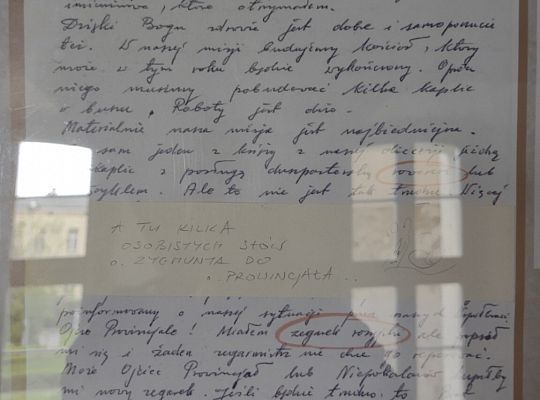 imieninowe, które otrzymałem.
Dzięki Bogu zdrowie jest dobre i samopoczucie
też. W naszej misji budujemy Kościół, który
może w tym roku będzie wykończony. Oprócz
niego musimy pobudować kilka kaplic
w buszu. Roboty jest dużo.
Materialnie nasza misja jest najbiedniejsza.
sam jeden z księży z naszej diecezji jeżdżę
kaplic z posługą duszpasterską rowerem lub
Ale to nie jest tak trudne. Więcej
A TU KILKA
OSOBISTYCH SŁÓW
O. ZYGMUNTA DO
O. PROWINCJAŁA...
poinformowany o naszej sytuacji
Ojcze Prowincjale! Miałem zegarek rosyjski ale zepsuł
mi się i żaden zegarmistrz nie chce go reperować.
Może Ojciec Prowincjał lub Niepokalanów kupiłby
mi nowy zegarek. Jeśli będzie trudno, to